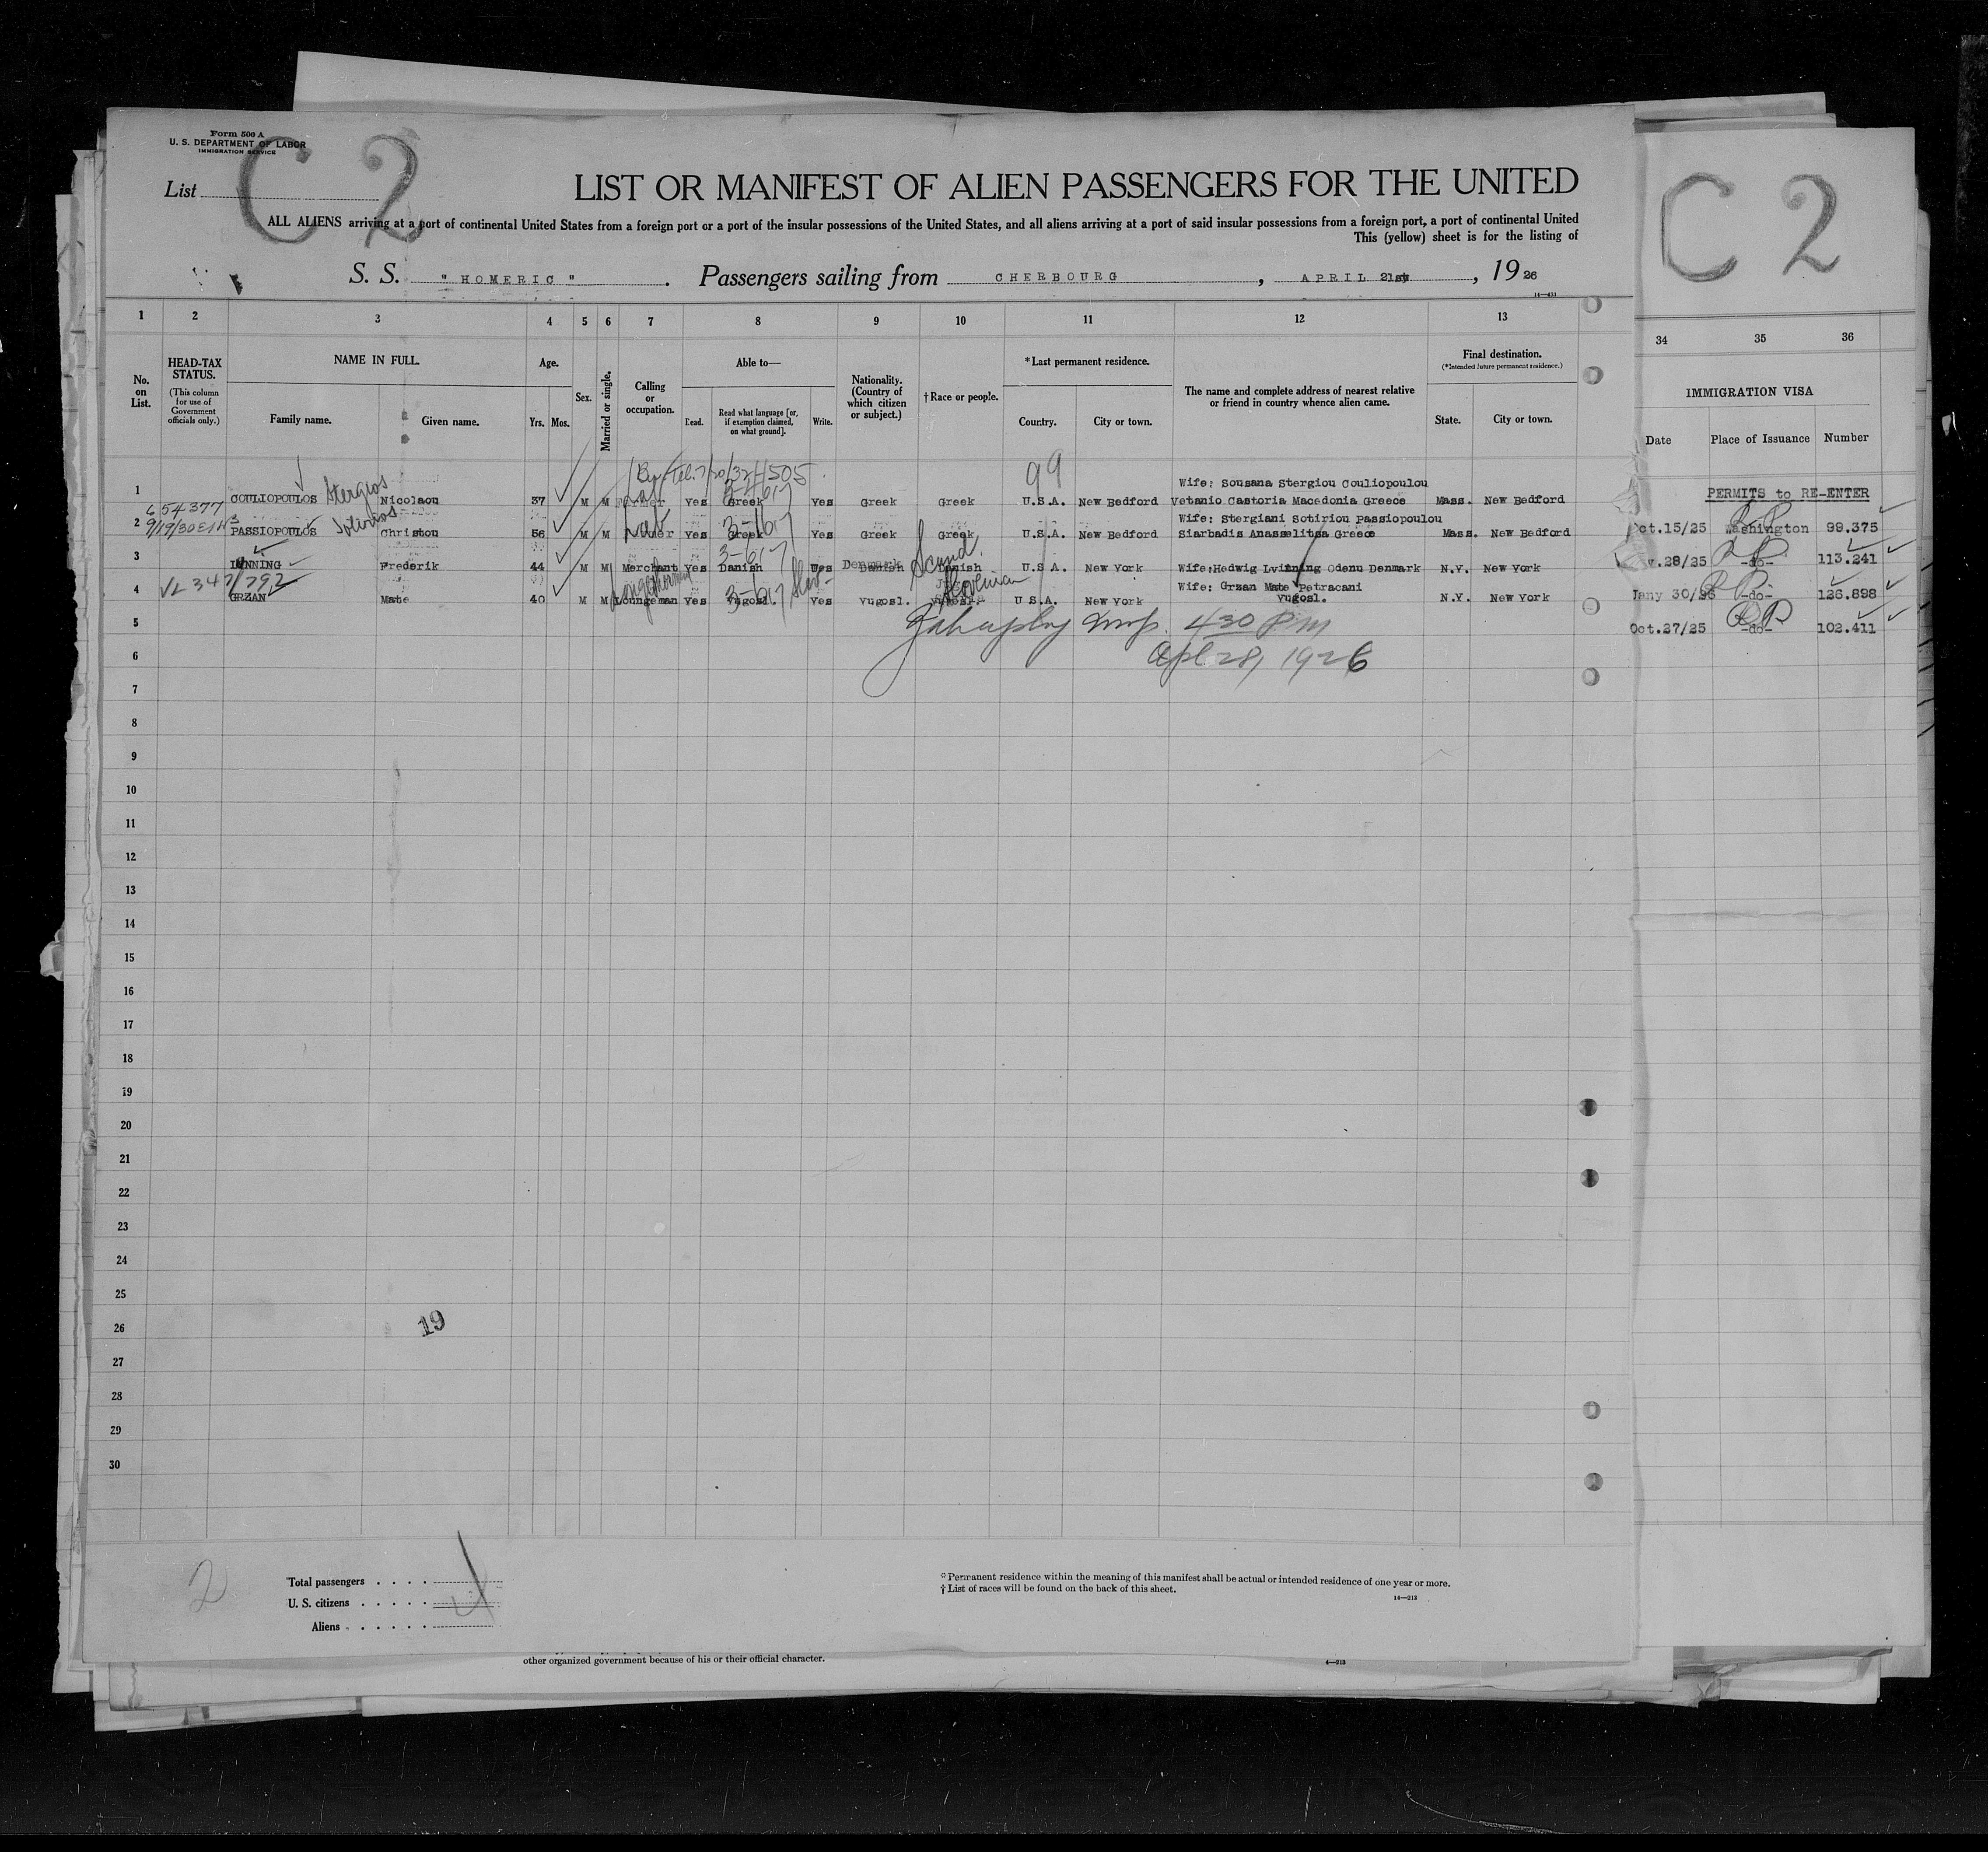 Form 500 A
U. S. DEPARTMENT OF LABOR
IMMIGRATION SERVICE
List
C 2
LIST OR MANIFEST OF ALIEN PASSENGERS FOR THE UNITED
ALL ALIENS arriving at a port of continental United States from a foreign port or a port of the insular possessions of the United States, and all aliens arriving at a port of said insular possessions from a foreign port, a port of continental United
This (yellow) sheet is for the listing of
S. S. " HOMERIC " . Passengers sailing from CHERBOURG , APRIL 21st , 19 26
14—431
C 2
1 2 3 4 5 6 7 8 9 10 11 12 13
34 35 36
No. on List.
HEAD-TAX STATUS.
(This column for use of Government officials only.)
NAME IN FULL.
Family name. Given name.
Age.
Yrs. Mos.
Sex.
Married or single.
Calling or occupation.
Able to—
Read. Read what language [or, if exemption claimed, on what ground]. Write.
Nationality. (Country of which citizen or subject.)
† Race or people.
*Last permanent residence.
Country. City or town.
The name and complete address of nearest relative or friend in country whence alien came.
Final destination.
(*Intended future permanent residence.)
State. City or town.
IMMIGRATION VISA
Date Place of Issuance Number
PERMITS to RE-ENTER
99
Wife: Sousana Stergiou Couliopoulou
1 COULIOPOULOS Stergios Nicolaou 37 M M Yes Greek Yes Greek Greek U.S.A. New Bedford Vetanio Castoria Macedonia Greece Mass. New Bedford
Oct.15/25 Washington 99.375
654377
9/19/30
Wife: Stergiani Sotiriou Passiopoulou
2 PASSIOPOULOS Sotirios Christou 56 M M Yes Greek Yes Greek Greek U.S.A. New Bedford Siarbadis Anasselitsa Greece Mass. New Bedford
28/25 -do- 113.241
3 LUNNING Frederik 44 M M Merchant Yes Danish 3-617 Yes Denmark Danish Scand. U.S.A. New York Wife:Hedwig Odenu Denmark N.Y. New York
Jany 30/26 -do- 126.898
VL 347/792
Wife: Grzan Mate Petracani
4 GRZAN Mate 40 M M Yes Yugosl. 3-617 Yes Yugosl. Slovenian U.S.A. New York Yugosl. N.Y. New York
Oct.27/25 -do- 102.411
5
430 PM
6
Apl 28, 1926
7
8
9
10
11
12
13
14
15
16
17
18
19
20
21
22
23
24
25
26
19
27
28
29
30
2
Total passengers
U. S. citizens
Aliens
* Permanent residence within the meaning of this manifest shall be actual or intended residence of one year or more.
† List of races will be found on the back of this sheet.
14—213
other organized government because of his or their official character.